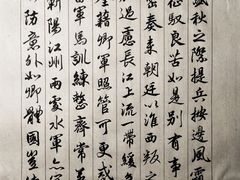 盛秋之際提兵按邊風
征馭良苦如是別有事
密奏來朝廷以淮西叛之
過慮長江上流一帶緩
籍卿軍照管可更戒
軍馬訓練整齊常若
陽江州兩處水軍亦
防意外如卿體國豈